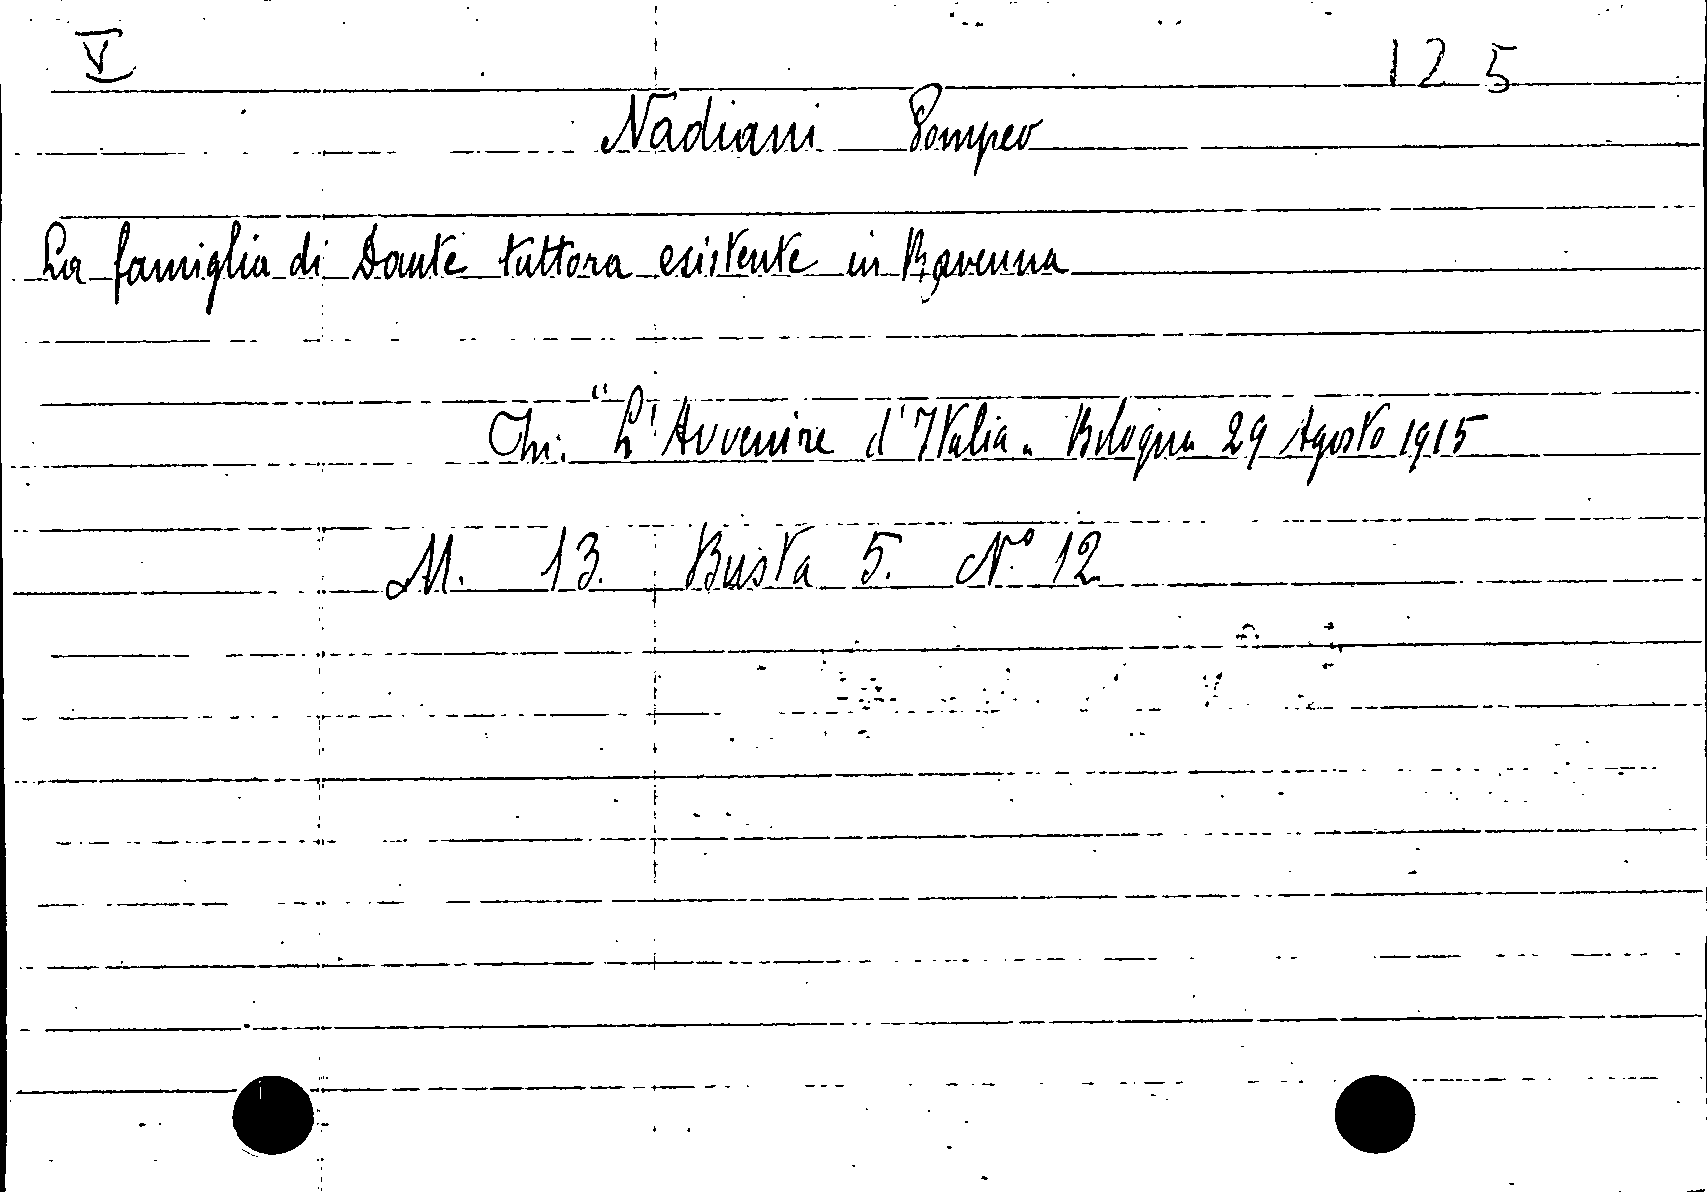 V 125
Nadiani Pompeo
La famiglia di Dante tuttora esistente in Ravenna
In: "L'Avvenire d'Italia" Bologna 29 Agosto 1915
M. 13. Busta 5. N.º 12